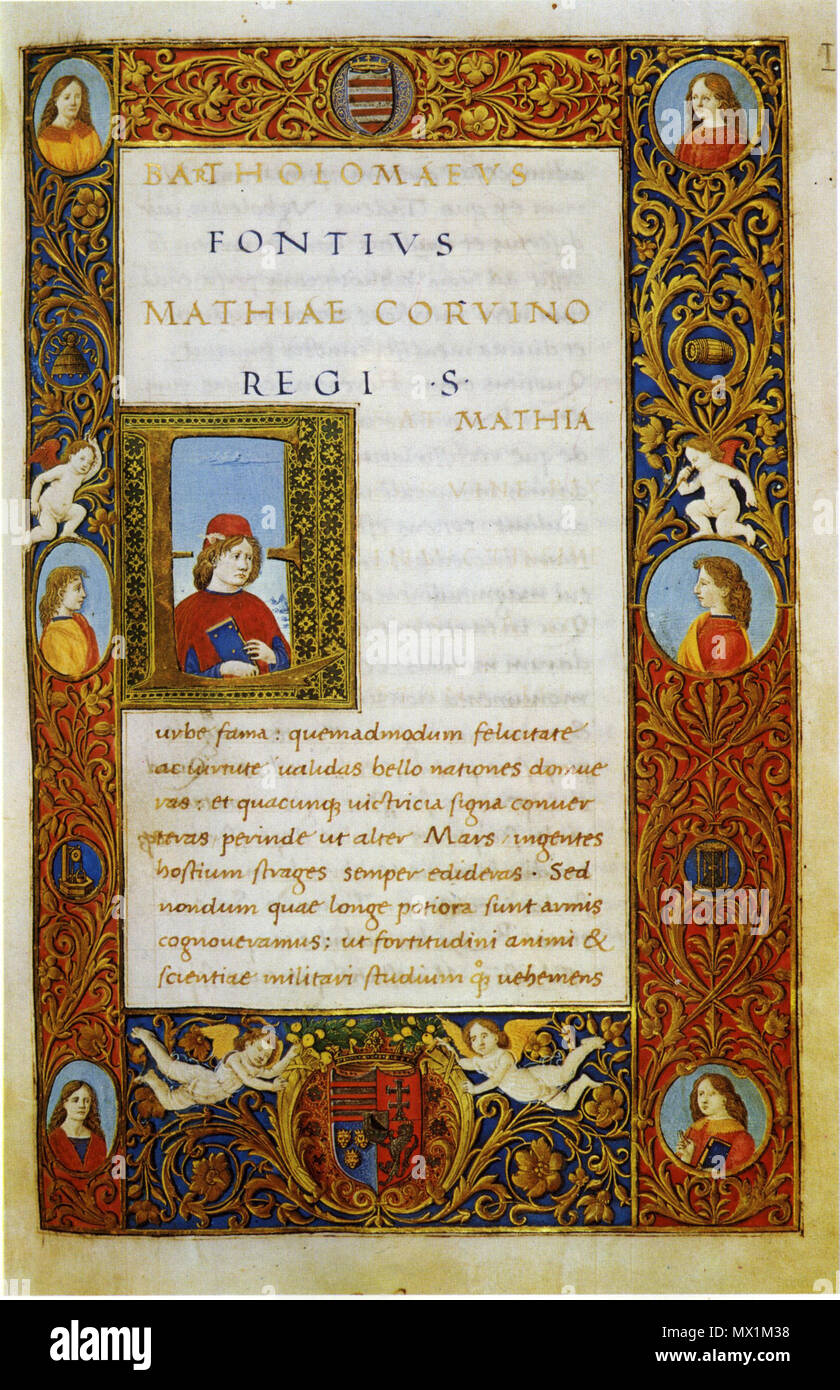 1
BARTHOLOMAEVS
FONTIVS
MATHIAE CORVINO
REGI ·S·
MATHIA
E
urbe fama: quemadmodum felicitate
ac uirtute ualidas bello nationes domue
ras: et quacunq; uictricia signa conuer
teras perinde ut alter Mars ingentes
hostium strages semper edideras. Sed
nondum quae longe potiora sunt armis
cognoueramus: ut fortitudini animi &
scientiae militari studium uehemens
alamy
Image ID: MX1M38
www.alamy.com